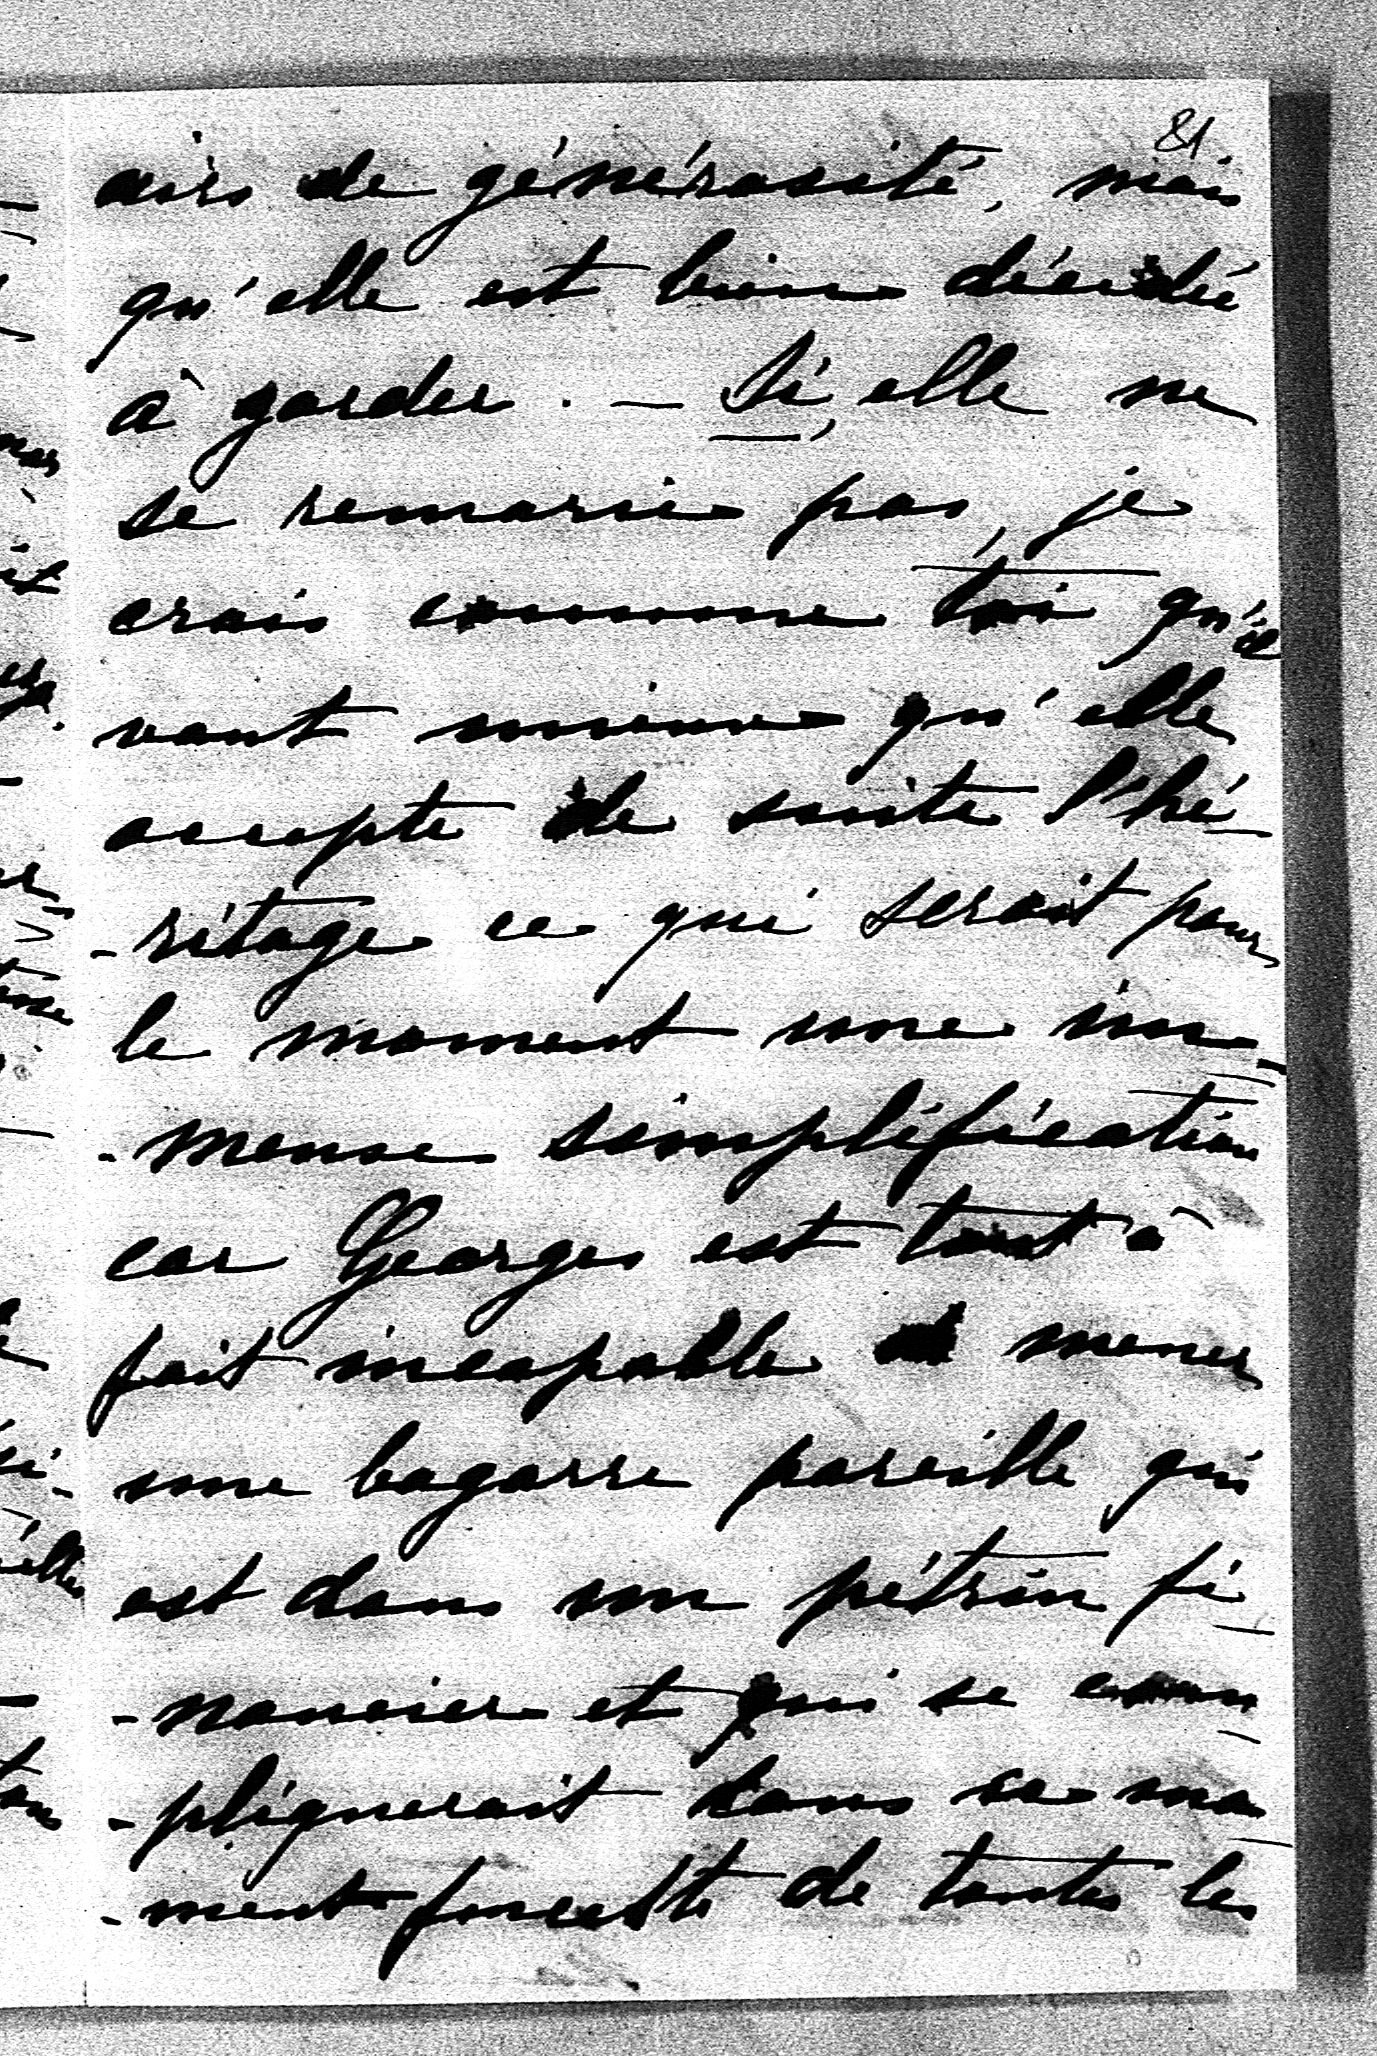 81
airs de générosité, mais
qu'elle est bien décidée
à garder. — Si, elle ne
se remarie pas, je
crois comme toi qu'il
vaut mieux qu'elle
accepte de suite l'hé-
-ritage ce qui serait pour
le moment une im-
-mense simplification
car Georges est tout à
fait incapable de mener
une bagarre pareille qui
est dans un pétrin fi-
-nancier et qui se com-
-pliquerait dans ce mo-
-ment funeste de toutes les